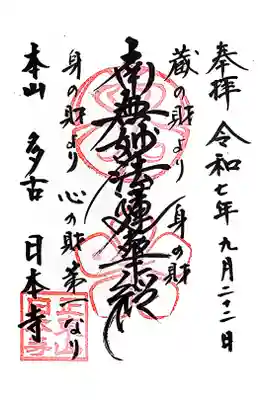 奉拝 令和七年九月二十二日
蔵の財より 身の財
南無妙法蓮華経
身の財より 心の財 第一なり
本山 多古 日本寺